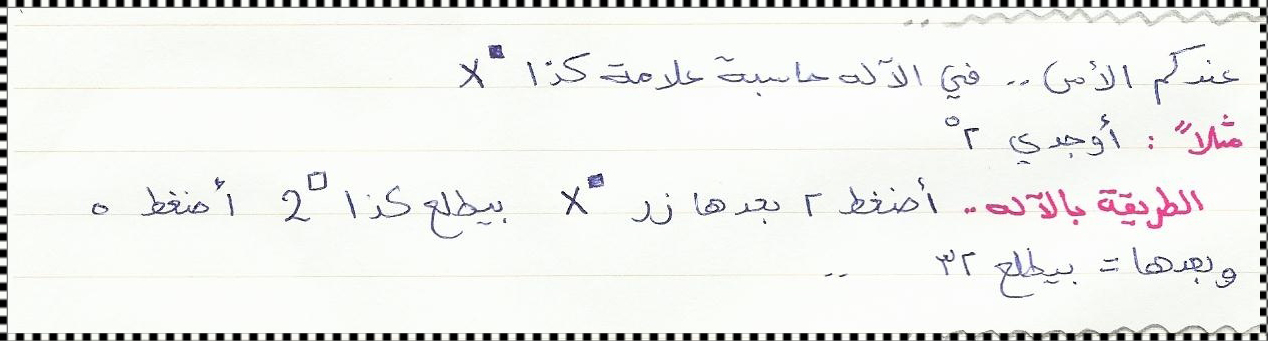 عندكم الأس .. في الآله حاسبة علامة كذا X■
مثلاً : أوجدي ٢٥
الطريقة بالآله .. أضغط ٢ بعدها زر X■ بيطلع كذا 2□ أضغط ٥
وبعدها = بيطلع ٣٢ ..